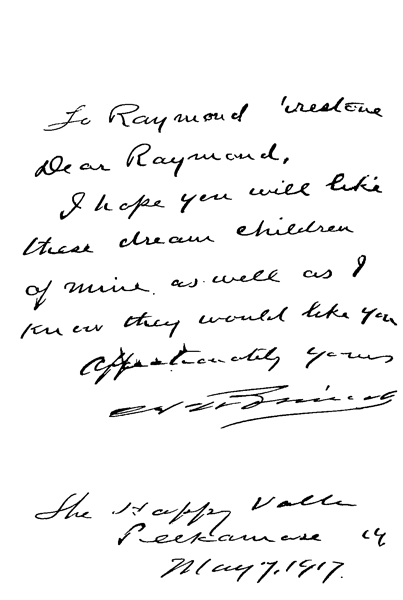 To Raymond
Dear Raymond,
I hope you will like
these dream children
of mine as well as I
know they would like you
Affectionately yours
The Happy
Peekamose
May 7, 1917.